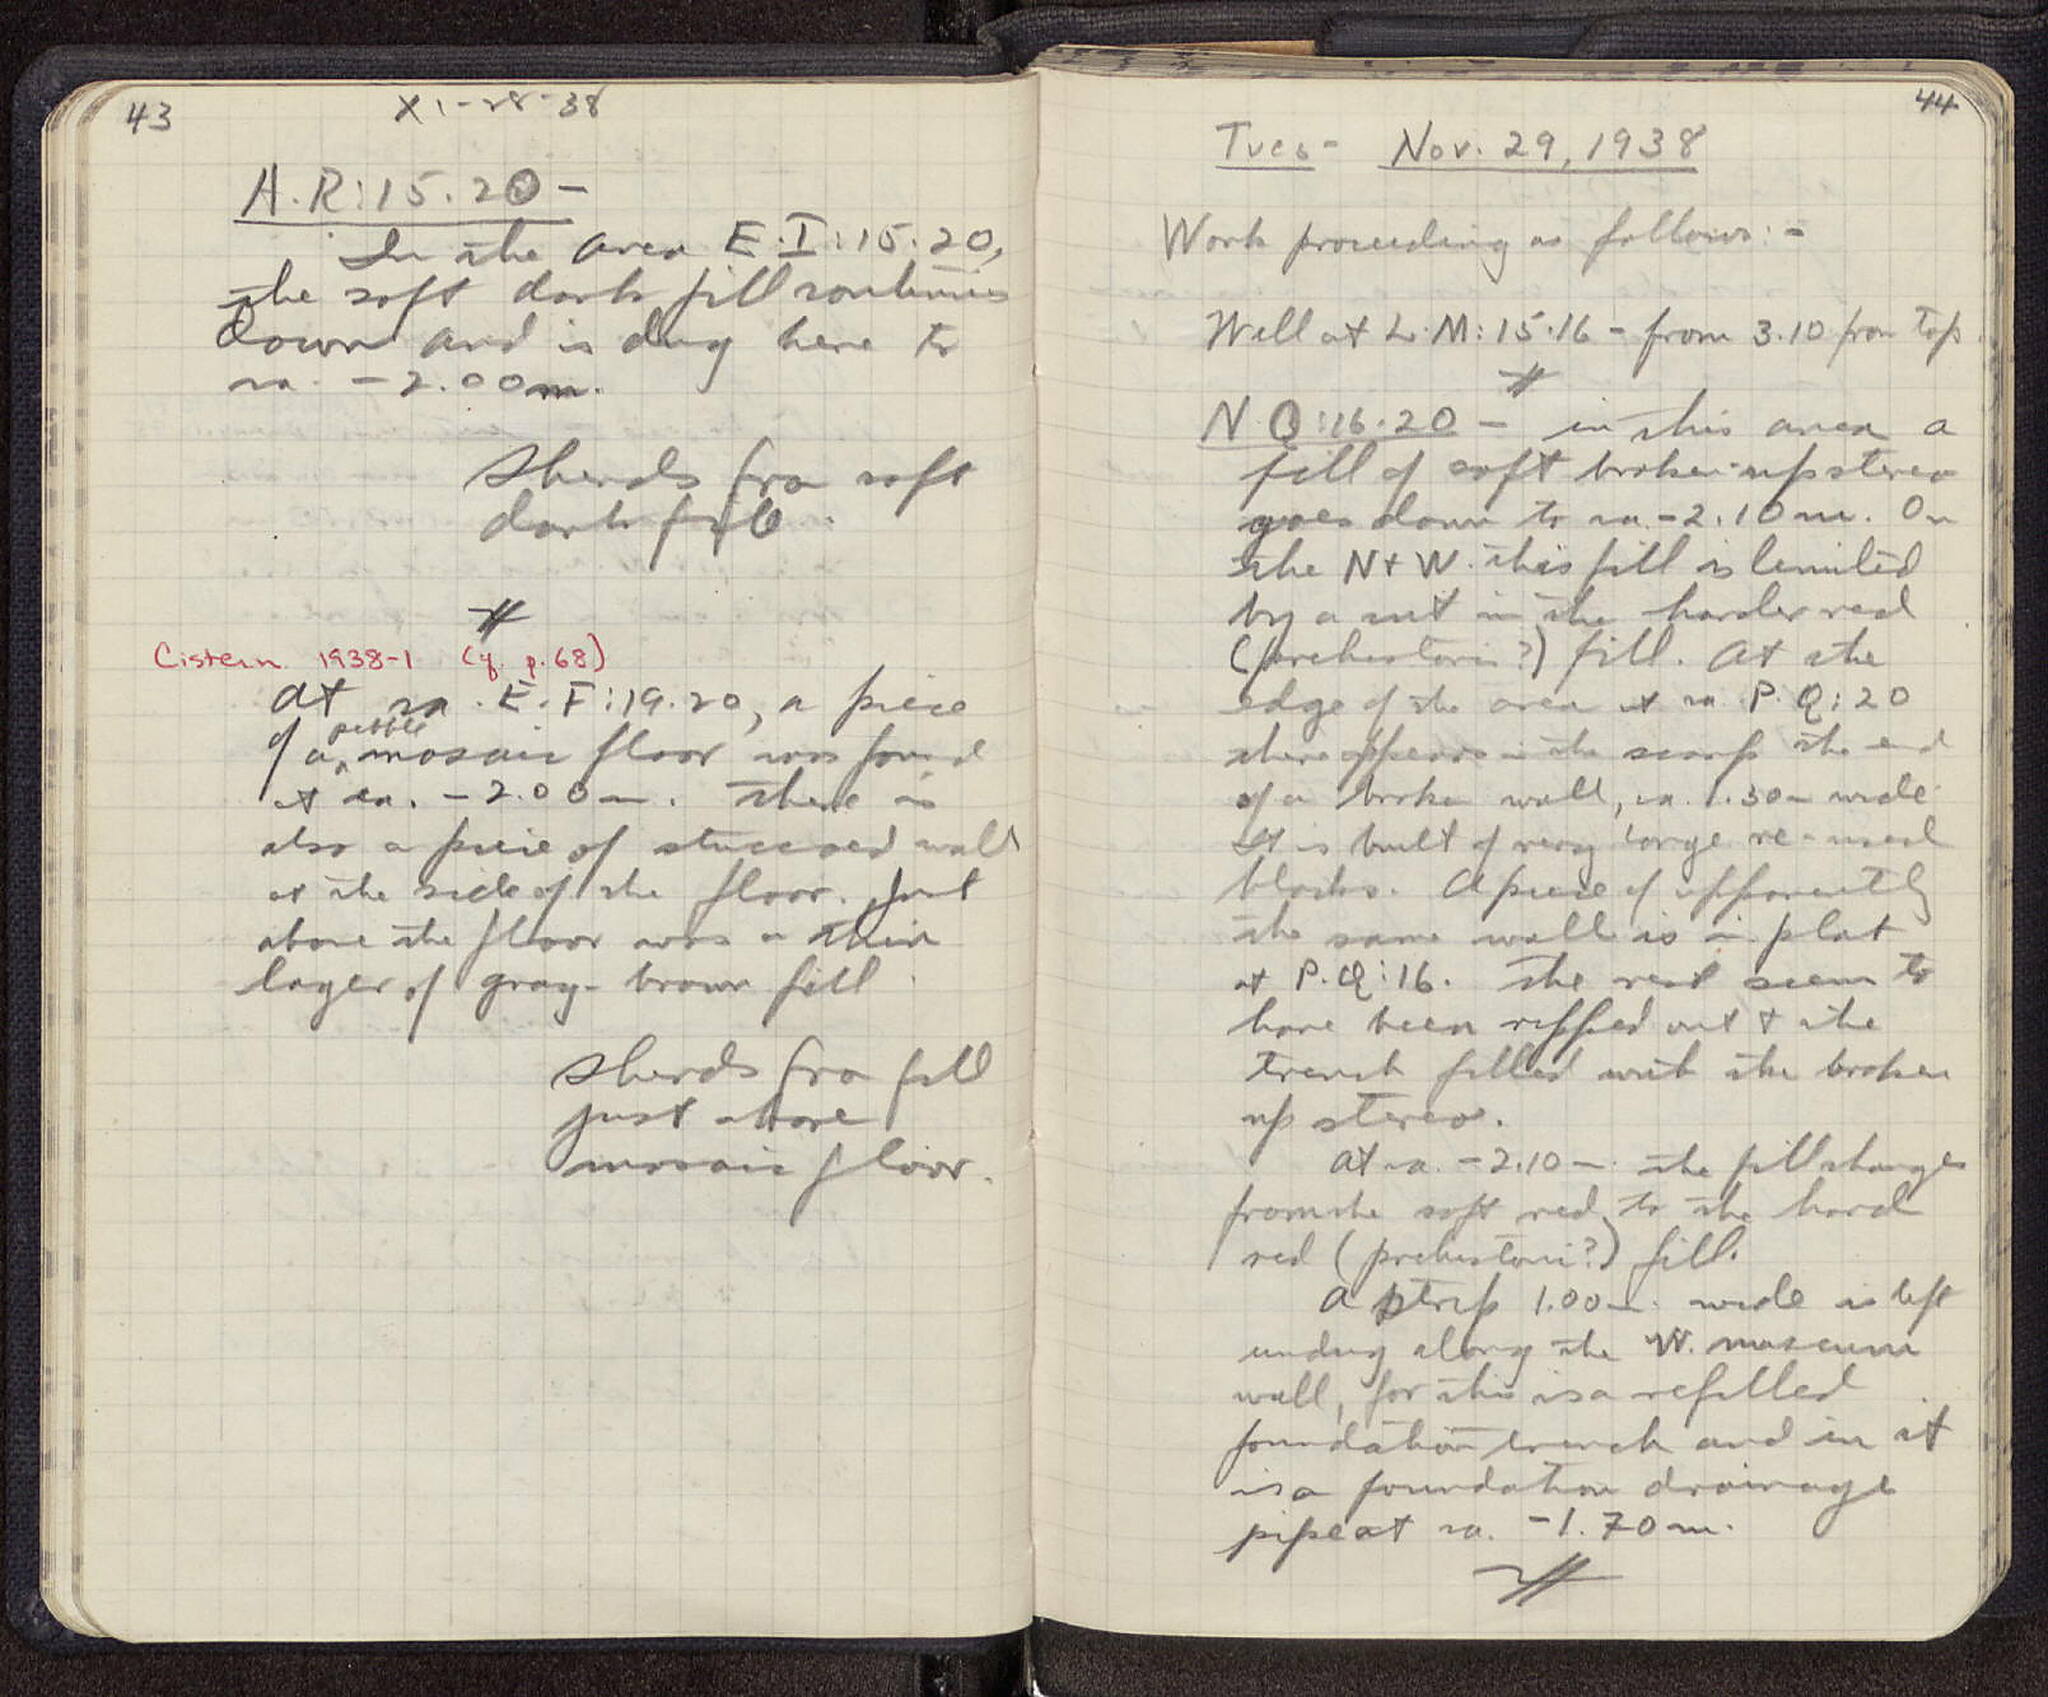 43
XI-28-38
A.R:15.20-
In the area E.I:15.20,
the soft dark fill continues
down and is dug here to
ca. -2.00m.
Sherds from soft
dark fill.
Cistern 1938-1 (cf. p.68)
At ca. E.F:19.20, a piece
pebble
of a mosaic floor was found
at ca. -2.00m. There is
also a piece of stuccoed wall
at the side of the floor. Just
above the floor was a thin
layer of gray-brown fill.
Sherds from fill
just above
mosaic floor.
44
Tues- Nov. 29, 1938
Work proceeding as follows:-
Well at L.M:15.16 - from 3.10 from top.
N.Q:16.20 - in this area a
fill of soft broken-up stereo
goes down to ca. -2.10m. On
the N+W. this fill is limited
by a cut in the harder red
(prehistoric?) fill. At the
edge of the area at ca. P.Q:20
there appears in the scarp the end
of a broken wall, ca. 1.30m wide.
It is built of very large re-used
blocks. A piece of apparently
the same wall is in place
at P.Q:16. The rest seems to
have been ripped out + the
trench filled with the broken
up stereo.
At ca. -2.10m. the fill changes
from the soft red, to the hard
red (prehistoric?) fill.
A strip 1.00m. wide is left
undug along the W. museum
wall, for this is a refilled
foundation trench and in it
is a foundation drainage
pipe at ca. -1.70m.